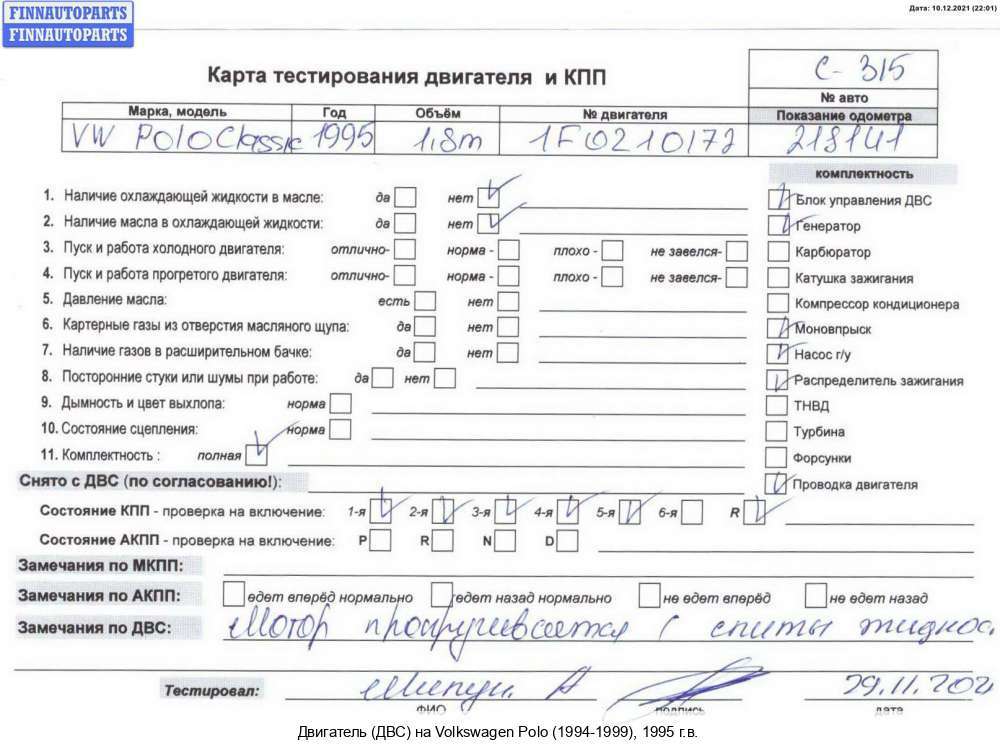 Дата: 10.12.2021 (22:01)
FINNAUTOPARTS
FINNAUTOPARTS
Карта тестирования двигателя и КПП
С-315
№ авто
Марка, модель Год Объём № двигателя Показание одометра
VW POLO Classic 1995 1,8m 1F0210172 218141
комплектность
1. Наличие охлаждающей жидкости в масле: да нет
Блок управления ДВС
2. Наличие масла в охлаждающей жидкости: да нет
Генератор
3. Пуск и работа холодного двигателя: отлично- норма - плохо - не завелся-
Карбюратор
4. Пуск и работа прогретого двигателя: отлично- норма - плохо - не завелся-
Катушка зажигания
5. Давление масла: есть нет
Компрессор кондиционера
6. Картерные газы из отверстия масляного щупа: да нет
Моновпрыск
7. Наличие газов в расширительном бачке: да нет
Насос г/у
8. Посторонние стуки или шумы при работе: да нет
Распределитель зажигания
9. Дымность и цвет выхлопа: норма
ТНВД
10. Состояние сцепления: норма
Турбина
11. Комплектность : полная
Форсунки
Снято с ДВС (по согласованию!):
Проводка двигателя
Состояние КПП - проверка на включение: 1-я 2-я 3-я 4-я 5-я 6-я R
Состояние АКПП - проверка на включение: P R N D
Замечания по МКПП:
Замечания по АКПП: едет вперёд нормально едет назад нормально не едет вперёд не едет назад
Замечания по ДВС: Мотор прокручивается
Тестировал: 29.11.202
ФИО подпись дата
Двигатель (ДВС) на Volkswagen Polo (1994-1999), 1995 г.в.